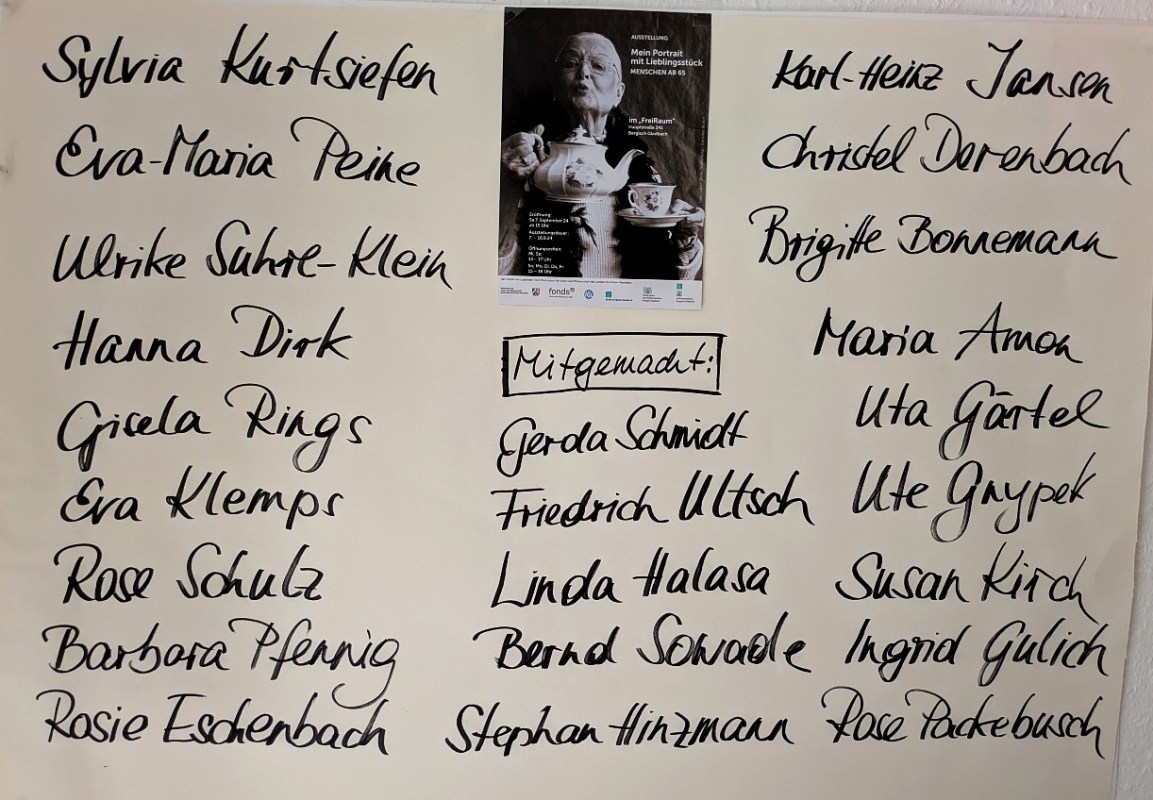 Sylvia Kurtsiefen
Eva-Maria Peine
Ulrike Suhre-Klein
Hanna Dirk
Gisela Rings
Eva Klemps
Rose Schulz
Barbara Pfennig
Rosie Eschenbach
AUSSTELLUNG
Mein Portrait
mit Lieblingsstück
MENSCHEN AB 65
im „FreiRaum"
Hauptstraße 241
Bergisch Gladbach
Eröffnung:
Sa 7. September 24
ab 15 Uhr
Ausstellungsdauer:
7. - 16.9.24
Öffnungszeiten:
Mi, Sa:
So, Mo, Di, Do, Fr:
15 - 18 Uhr
fonds
Mitgemacht:
Gerda Schmidt
Friedrich Ultsch
Linda Halasa
Bernd Sowade
Stephan Hinzmann
Karl-Heinz Jansen
Christel Derenbach
Brigitte Bonnemann
Maria Amon
Uta Gärtel
Ute Gnypek
Susan Kirch
Ingrid Gülich
Rose Packebusch